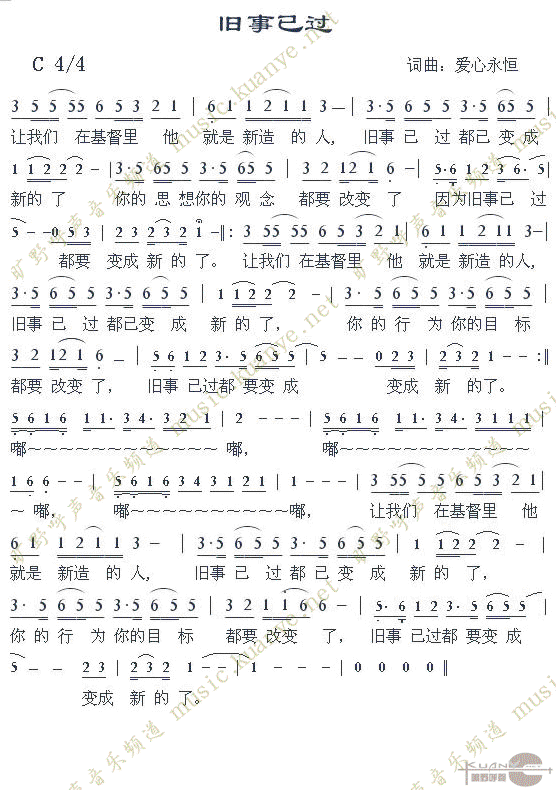 旧事已过
C 4/4 词曲：爱心永恒
3 5 55 5 6 5 3 2 1 | 6 1 1 1 2 1 1 3— | 3·5 6 5 5 3·5 65 5 |
让我们 在基督里 他 就是新造 的 人, 旧事 已 过 都已 变 成
1 1 2 2 2 – | 3·5 65 5 3·5 6 5 5 | 3 2 12 1 6 – | 5·6 1 2 3·5
新的 了 你的 思 想你的 观 念 都要 改变 了 因为旧事已 过
5 – 0 5 3 | 2 3 2 3 2 1 – ‖: 3 55 5 5 6 5 3 2 1 | 6 1 1 1 2 1 1 3—|
都要 变成 新 的 了。 让我们 在基督里 他 就是 新造 的人,
3·5 6 5 5 3·5 6 5 5 | 1 1 2 2 2 – | 3·5 6 5 5 3·5 6 5 5 |
旧事 已 过 都已变 成 新 的 了, 你 的 行 为 你的 目 标
3 2 12 1 6 – | 5·6 1 2 3·5 6 5 | 5 – – 0 2 3 | 2 3 2 1 – :‖
都要 改变 了, 旧事 已过都 要变 成 变成 新 的了。
5 6 1 6 1 1· 3 4· 3 2 1 | 2 – – – | 5 6 1 6 1 1· 3 4· 3 2 1 |
嘟~~~~~~~~~~~ 嘟, 嘟~~~~~~~~~~~
1 6 6 – – | 5 6 1 6 3 4 3 2 1 | 1 – – – | 3 55 5 5 6 5 3 2 1 |
~ 嘟, 嘟~~~~~~~~~~ 嘟, 让我们 在基督里 他
6 1 1 1 2 1 1 3 – | 3·5 6 5 5 3·5 6 5 5 | 1 1 2 2 2 – |
就是 新造 的 人, 旧事 已 过 都 已 变 成 新 的 了,
3·5 6 5 5 3·5 6 5 5 | 3 2 1 2 1 6 – | 5·6 1 2 3·5 6 5 |
你 的 行 为 你的目 标 都要 改变 了, 旧事 已过都 要变 成
5 – – 2 3 | 2 3 2 1 – | 1 – – – | 0 0 0 0 ‖
变成 新 的 了。
旷野呼声音乐频道 music.kuanye.net